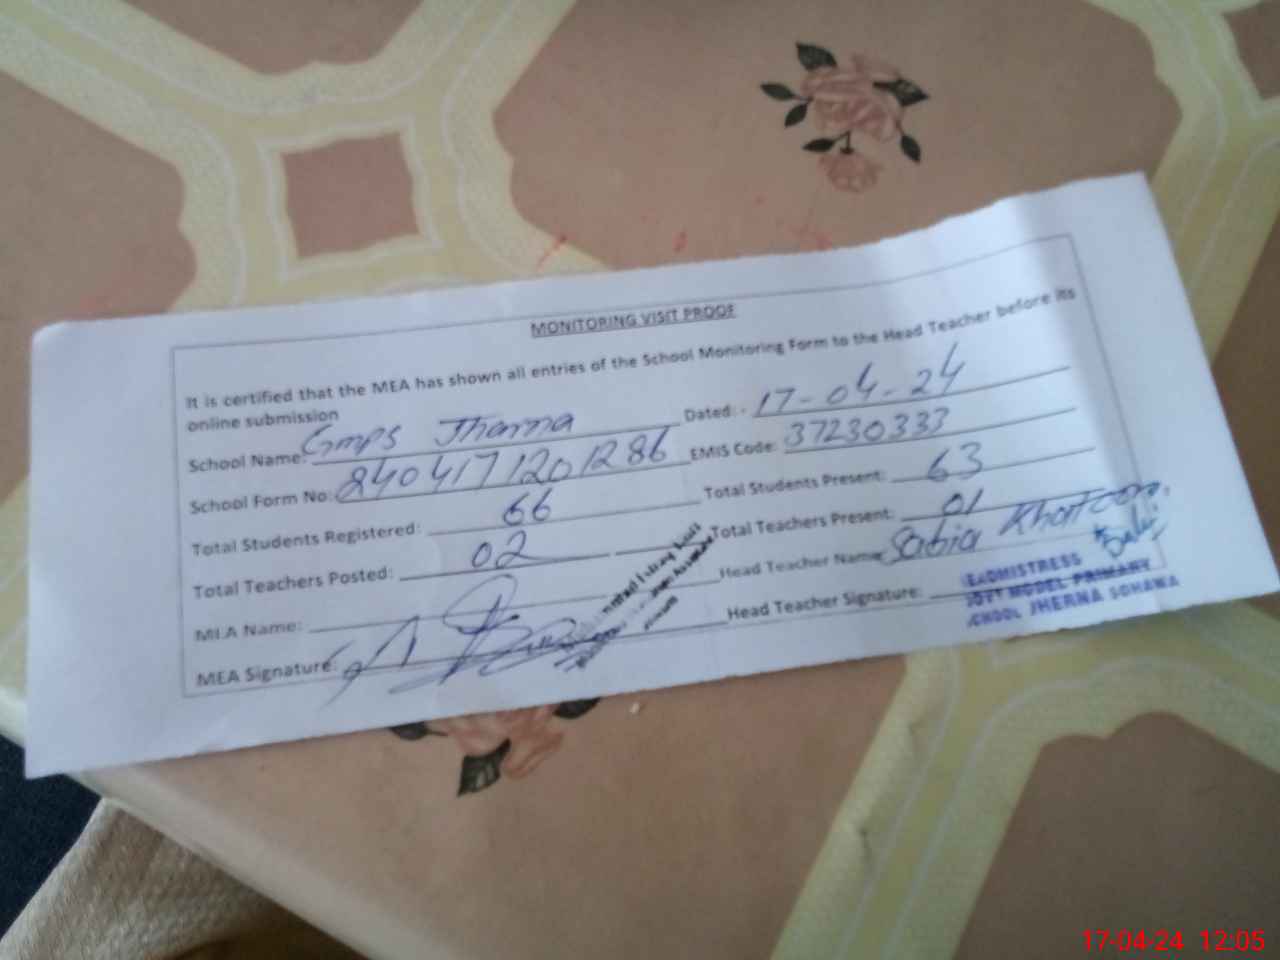 MONITORING VISIT PROOF
It is certified that the MEA has shown all entries of the School Monitoring Form to the Head Teacher before its
online submission
School Name: GMPS Jherna Dated: - 17-04-24
School Form No: 2404171201286 EMIS Code: 37230333
Total Students Registered: 66 Total Students Present: 63
Total Teachers Posted: 02 Total Teachers Present: 01
MEA Name: Head Teacher Name: Sabia Khatoon
MEA Signature: Head Teacher Signature:
HEADMISTRESS
GOVT MODEL PRIMARY
SCHOOL JHERNA SOHAWA
17-04-24 12:05